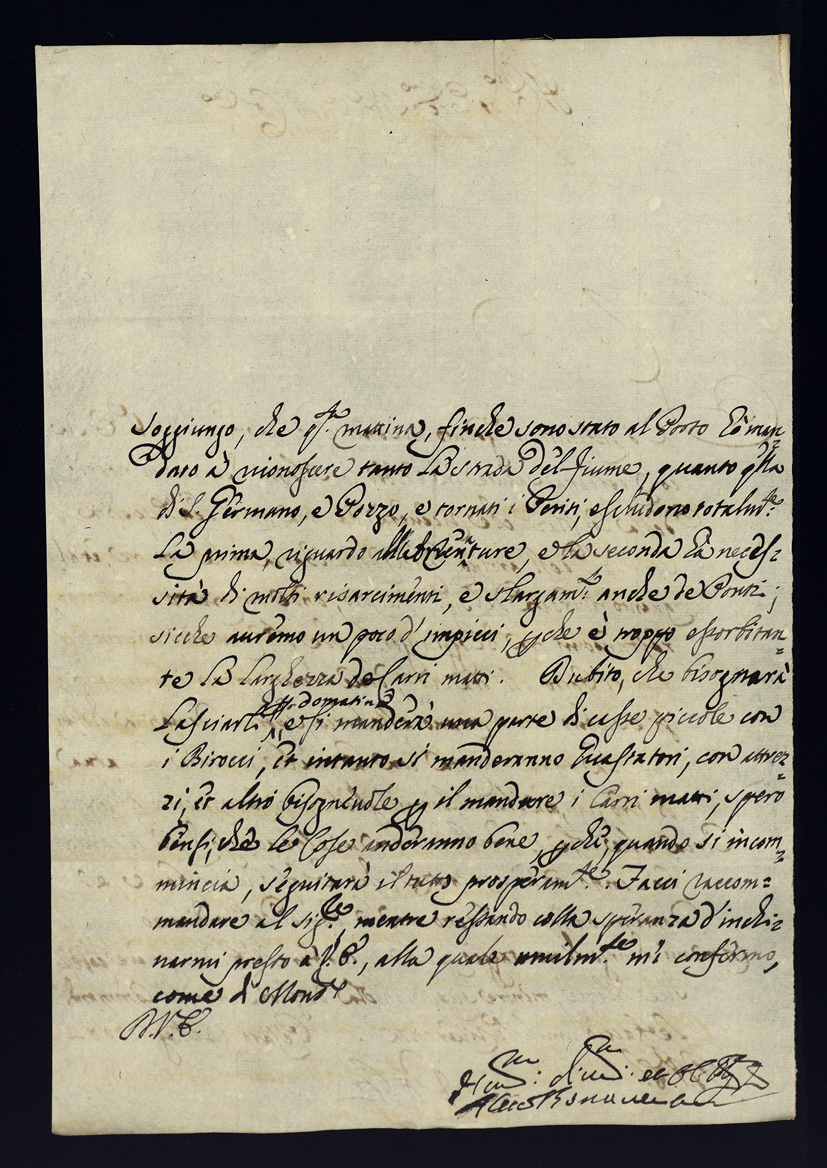 soggiungo, che q.ta mattina, finche sono stato al Porto hò man=
dato à riconoscere tanto la strada del fiume, quanto q̃lla
di S. Germano, e Pozzo, e tornati i Periti, escludono totalm.te
la prima, riguardo alle, e la seconda hà neces=
sità di molti risarcimenti, e slargam.ti anche de Ponti;
sicche auremo un poco d'impicci, p̱che è troppo essorbitan=
te la larghezza de Carri matti. Dubito, che bisognarà
lasciarli p. domatina, e si manderà una parte di casse piccole con
i Birocci, et intanto si manderanno Guastatori, con attrez=
zi, et altro bisogneuole p̱ il mandare i Carri matti, spero
bensi, che le Cose anderanno bene, p̱che quando si incom=
mincia, seguitarà il tutto prosperam.te. Facci raccom=
mandare al Sig.re, mentre restando colla speranza d'inchi=
narmi presto à V.E., alla quale umilm.te mi confermo,
come di Mond.o
D.V.E.
Um.mo: di.mo: et obl.